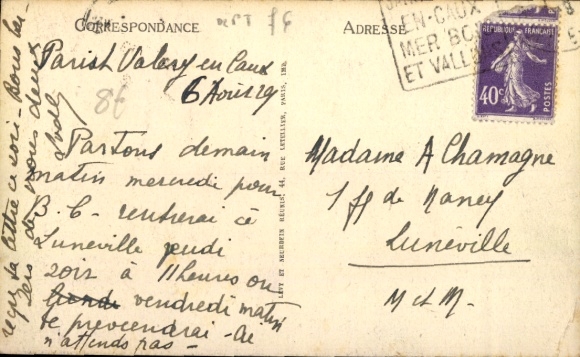 CORRESPONDANCE
ADRESSE
DPT 76
EN-CAUX
MER BO
ET VALL
RÉPUBLIQUE FRANÇAISE
40c
POSTES
Par St Valery en Caux
6 Août 29
86
Partons demain
matin mercredi pour
B. C- rentrerai à
Lunéville jeudi
soir à 11 heures ou
vendredi matin
te previendrai - 
n'attends pas -
reçu ta lettre ce soir - Bons bai-
sers de nous deux
LÉVY ET NEURDEIN RÉUNIS, 44, RUE LETELLIER, PARIS, IMP.
Madame A Chamagne
1 fg de Nancy
Lunéville
M et M-